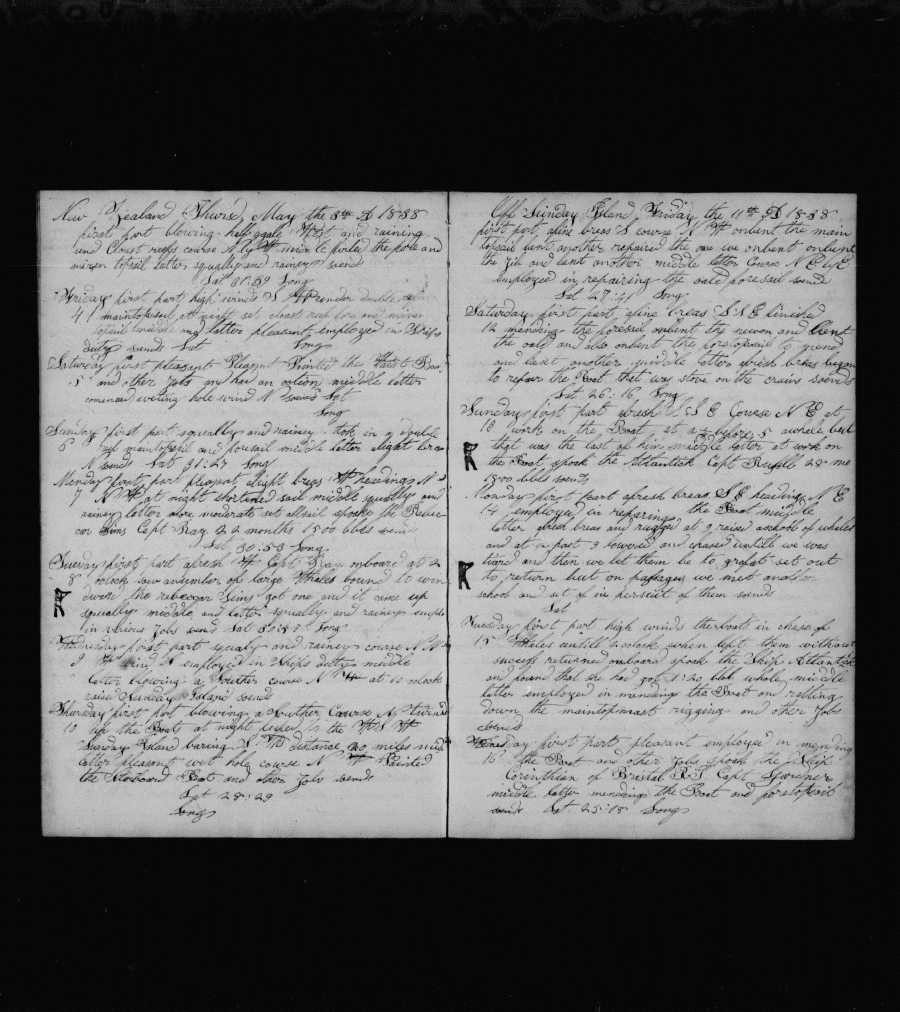 New Zealand Thursd, May the 3th A 1838
first part blowing a gale West and raining
and Close reefs course N
mizen topsail latter squally and rainey so ends
Lat 31:59 Long
Friday first part high winds S W under double reef
4 / maintopsail at night set close reef fore and mizen
topsail middle and latter pleasent employed in Ships
duty so ends Lat Long
Saturday first pleasent Painted the Waist Boat
5 and other jobs and had an middle latter
comenced weting hole wind N soends Lat
Long
Sunday first part squally and rainey took in a double
6 reef maintopsail and foresail middle latter slight breas
N soends Lat 31:27 Long
Monday first part pleasent slight breas W heading N
7 N W at night shortened sail middle squally and
rainey latter more moderate set allsail spoke the Rebec
cor Sims Capt Ray 22 months 1500 bbls soends
Lat 30:53 Long
Tuesday first part afresh W Capt Ray onboard at 2
8 oclock saw anumber of large Whales bound to win
dward the rebeccor Sims got one and it came up
squally middle and latter squally and rainey emplo
in various Jobs soends Lat Long
Wednesday first part squaly and rainey course N W
9 W employed in Ships duty middle
latter blowing a Souther course N W at 10 oclock
raised Sunday Island soends
Thursday first part blowing a Souther Course N turnd
10 up the Boats at night to the W S W
Sunday Island baring distance 20 miles midd
latter pleasent wet hole course N W Painted
the Starboard Boat and other Jobs soends
Lat 28:29
Long
Off Sunday Island Friday the 11th A 1838
first part, afine breas S course N W onbent the main
topsail bent another repaired the one we onbent onbent
the Jib and bent another middle latter Course N E by E
employed in repairing the oald foresail soends
Lat 27:41 Long
Saturday first part afine breas S S E finished
12 mending the foresail onbent the newon and bent
the oald and also onbent the foretopsail to mend
and bent another middle latter afresh breas began
to repaire the Boat that was stove on the crains soends
Lat 26:16 Long
Sunday first part afresh S E Course N E at
13 work on the Boat at a before 5 awhale but
that was the last of him middle latter at work on
the Boat spoke the Atlantick Capt 28 mo
1500 bbls soends
Monday first part afresh breas S E heading N E
14 employed in repairing the Boat middle
latter afresh breas and rugged at 9 raised aschool of whales
and at past 9 lowered and chased untill we was
tierd and then we let them be to grate set out
to return but on passages we met another
school and set of in persuit of them soends
Lat
Tuesday first part high winds theboats in chase of
15 Whales untill 2 oclock when left them without
success returned onboard spoke the Ship Atlantick
and found that she had 120 bbl whale middle
latter employed in mending the Boat on ratling
down the maintopmast rigging and other Jobs
soends
Wensday first part pleasant employed in mending
16 the Boat and other Jobs spoke the Ship
Corinthian of Bristol R I Capt Gardner
middle latter mending the Boat and foretopsail
soends Lat 25:18 Long